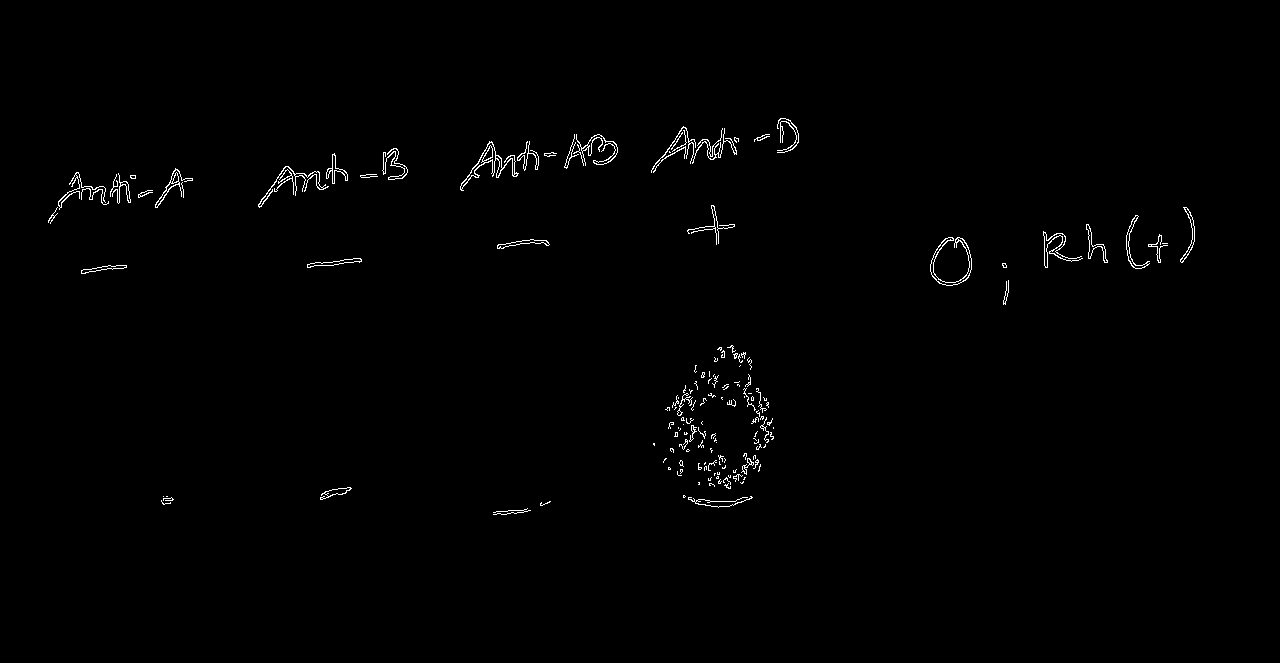 Anti-A Anti-B Anti-AB Anti-D
— — — + O; Rh(+)